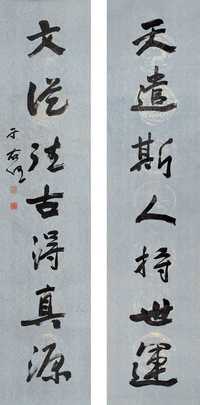 天遣斯人持世運
文從法古得真源
于右任